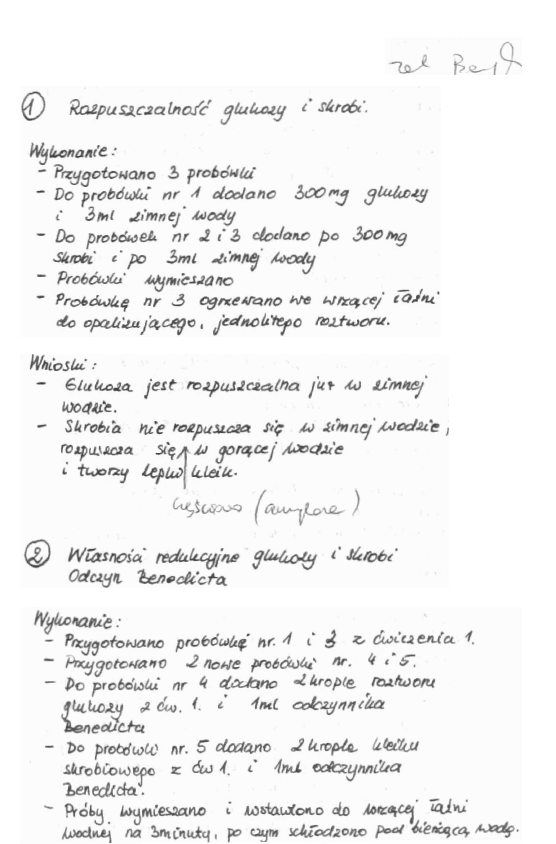 zal
① Rozpuszczalność glukozy i skrobi.
Wykonanie:
- Przygotowano 3 probówki
- Do probówki nr 1 dodano 300mg glukozy
i 3ml zimnej wody
- Do probówek nr 2 i 3 dodano po 300mg
skrobi i po 3ml zimnej wody
- Probówki wymieszano
- Probówkę nr 3 ogrzewano we wrzącej łaźni
do opalizującego, jednolitego roztworu.
Wnioski:
- Glukoza jest rozpuszczalna już w zimnej
wodzie.
- Skrobia nie rozpuszcza się w zimnej wodzie,
rozpuszcza się w gorącej wodzie
i tworzy lepki kleik.
częściowo (amyloza)
② Własności redukcyjne glukozy i skrobi
Odczyn Benedicta
Wykonanie:
- Przygotowano probówkę nr. 1 i 3 z ćwiczenia 1.
- Przygotowano 2 nowe probówki nr. 4 i 5.
- Do probówki nr 4 dodano 2 krople roztworu
glukozy z ćw. 1. i 1ml odczynnika
Benedicta
- Do probówki nr. 5 dodano 2 krople kleiku
skrobiowego z ćw 1. i 1ml odczynnika
Benedicta.
- Próby wymieszano i wstawiono do wrzącej łaźni
wodnej na 3minuty, po czym schłodzono pod bieżącą wodą.